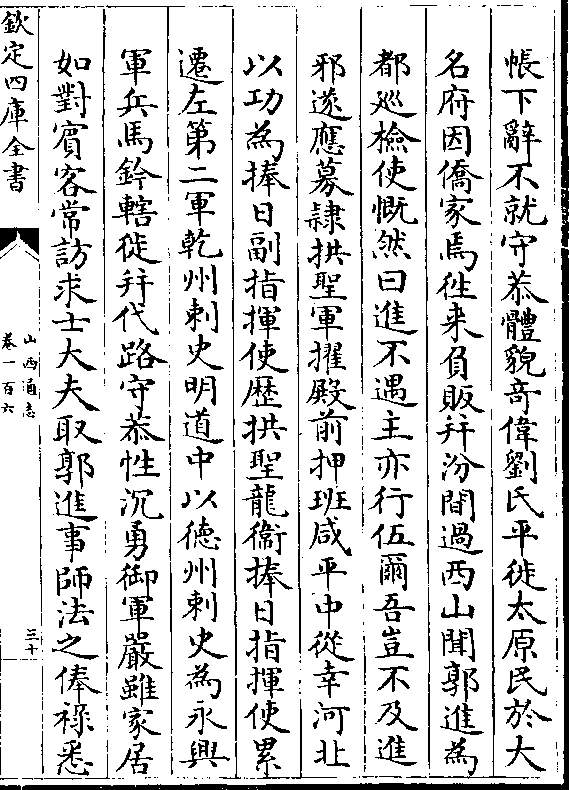 帳下辭不就守恭體貌竒偉劉氏平徙太原民於大
名府因僑家焉徃来負販幷汾間過西山聞郭進為
都巡檢使慨然曰進不遇主亦行伍爾吾豈不及進
邪遂應募隷拱聖軍擢殿前押班咸平中從幸河北
以功為捧日副指揮使歴拱聖龍衞捧日指揮使累
遷左第二軍乾州刺史明道中以徳州刺史為永興
軍兵馬鈐轄徙幷代路守恭性沉勇御軍嚴雖家居
如對賓客常訪求士大夫取郭進事師法之俸祿悉
欽定四庫全書
山西通志
卷一百六
三十